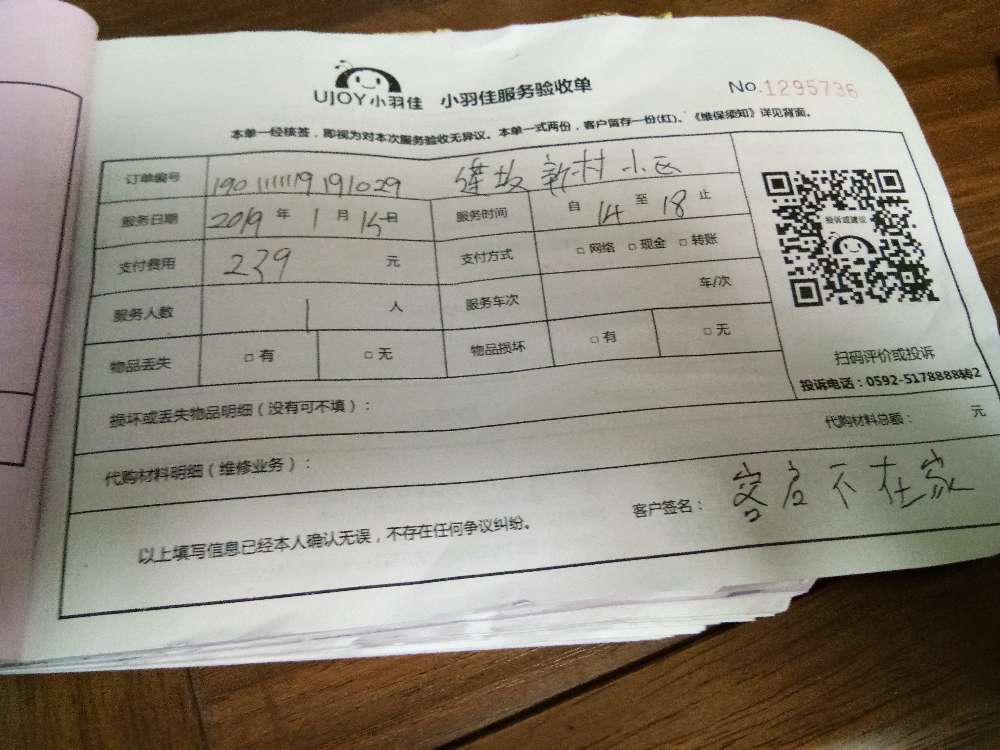 UJOY小羽佳 小羽佳服务验收单 No.1295736
本单一经核签，即视为对本次服务验收无异议。本单一式两份，客户留存一份(红)、《维保须知》详见背面。
订单编号 190111119191029 莲坂新村小区
服务日期 2019年1月15日 服务时间 自14至18止
支付费用 239元 支付方式 □网络 □现金 □转账
服务人数 1人 服务车次 车/次
物品丢失 □有 □无 物品损坏 □有 □无
投诉或建议
扫码评价或投诉
投诉电话：0592-5178888转2
损坏或丢失物品明细（没有可不填）：
代购材料明细（维修业务）： 代购材料总额： 元
以上填写信息已经本人确认无误，不存在任何争议纠纷。 客户签名：客户不在家